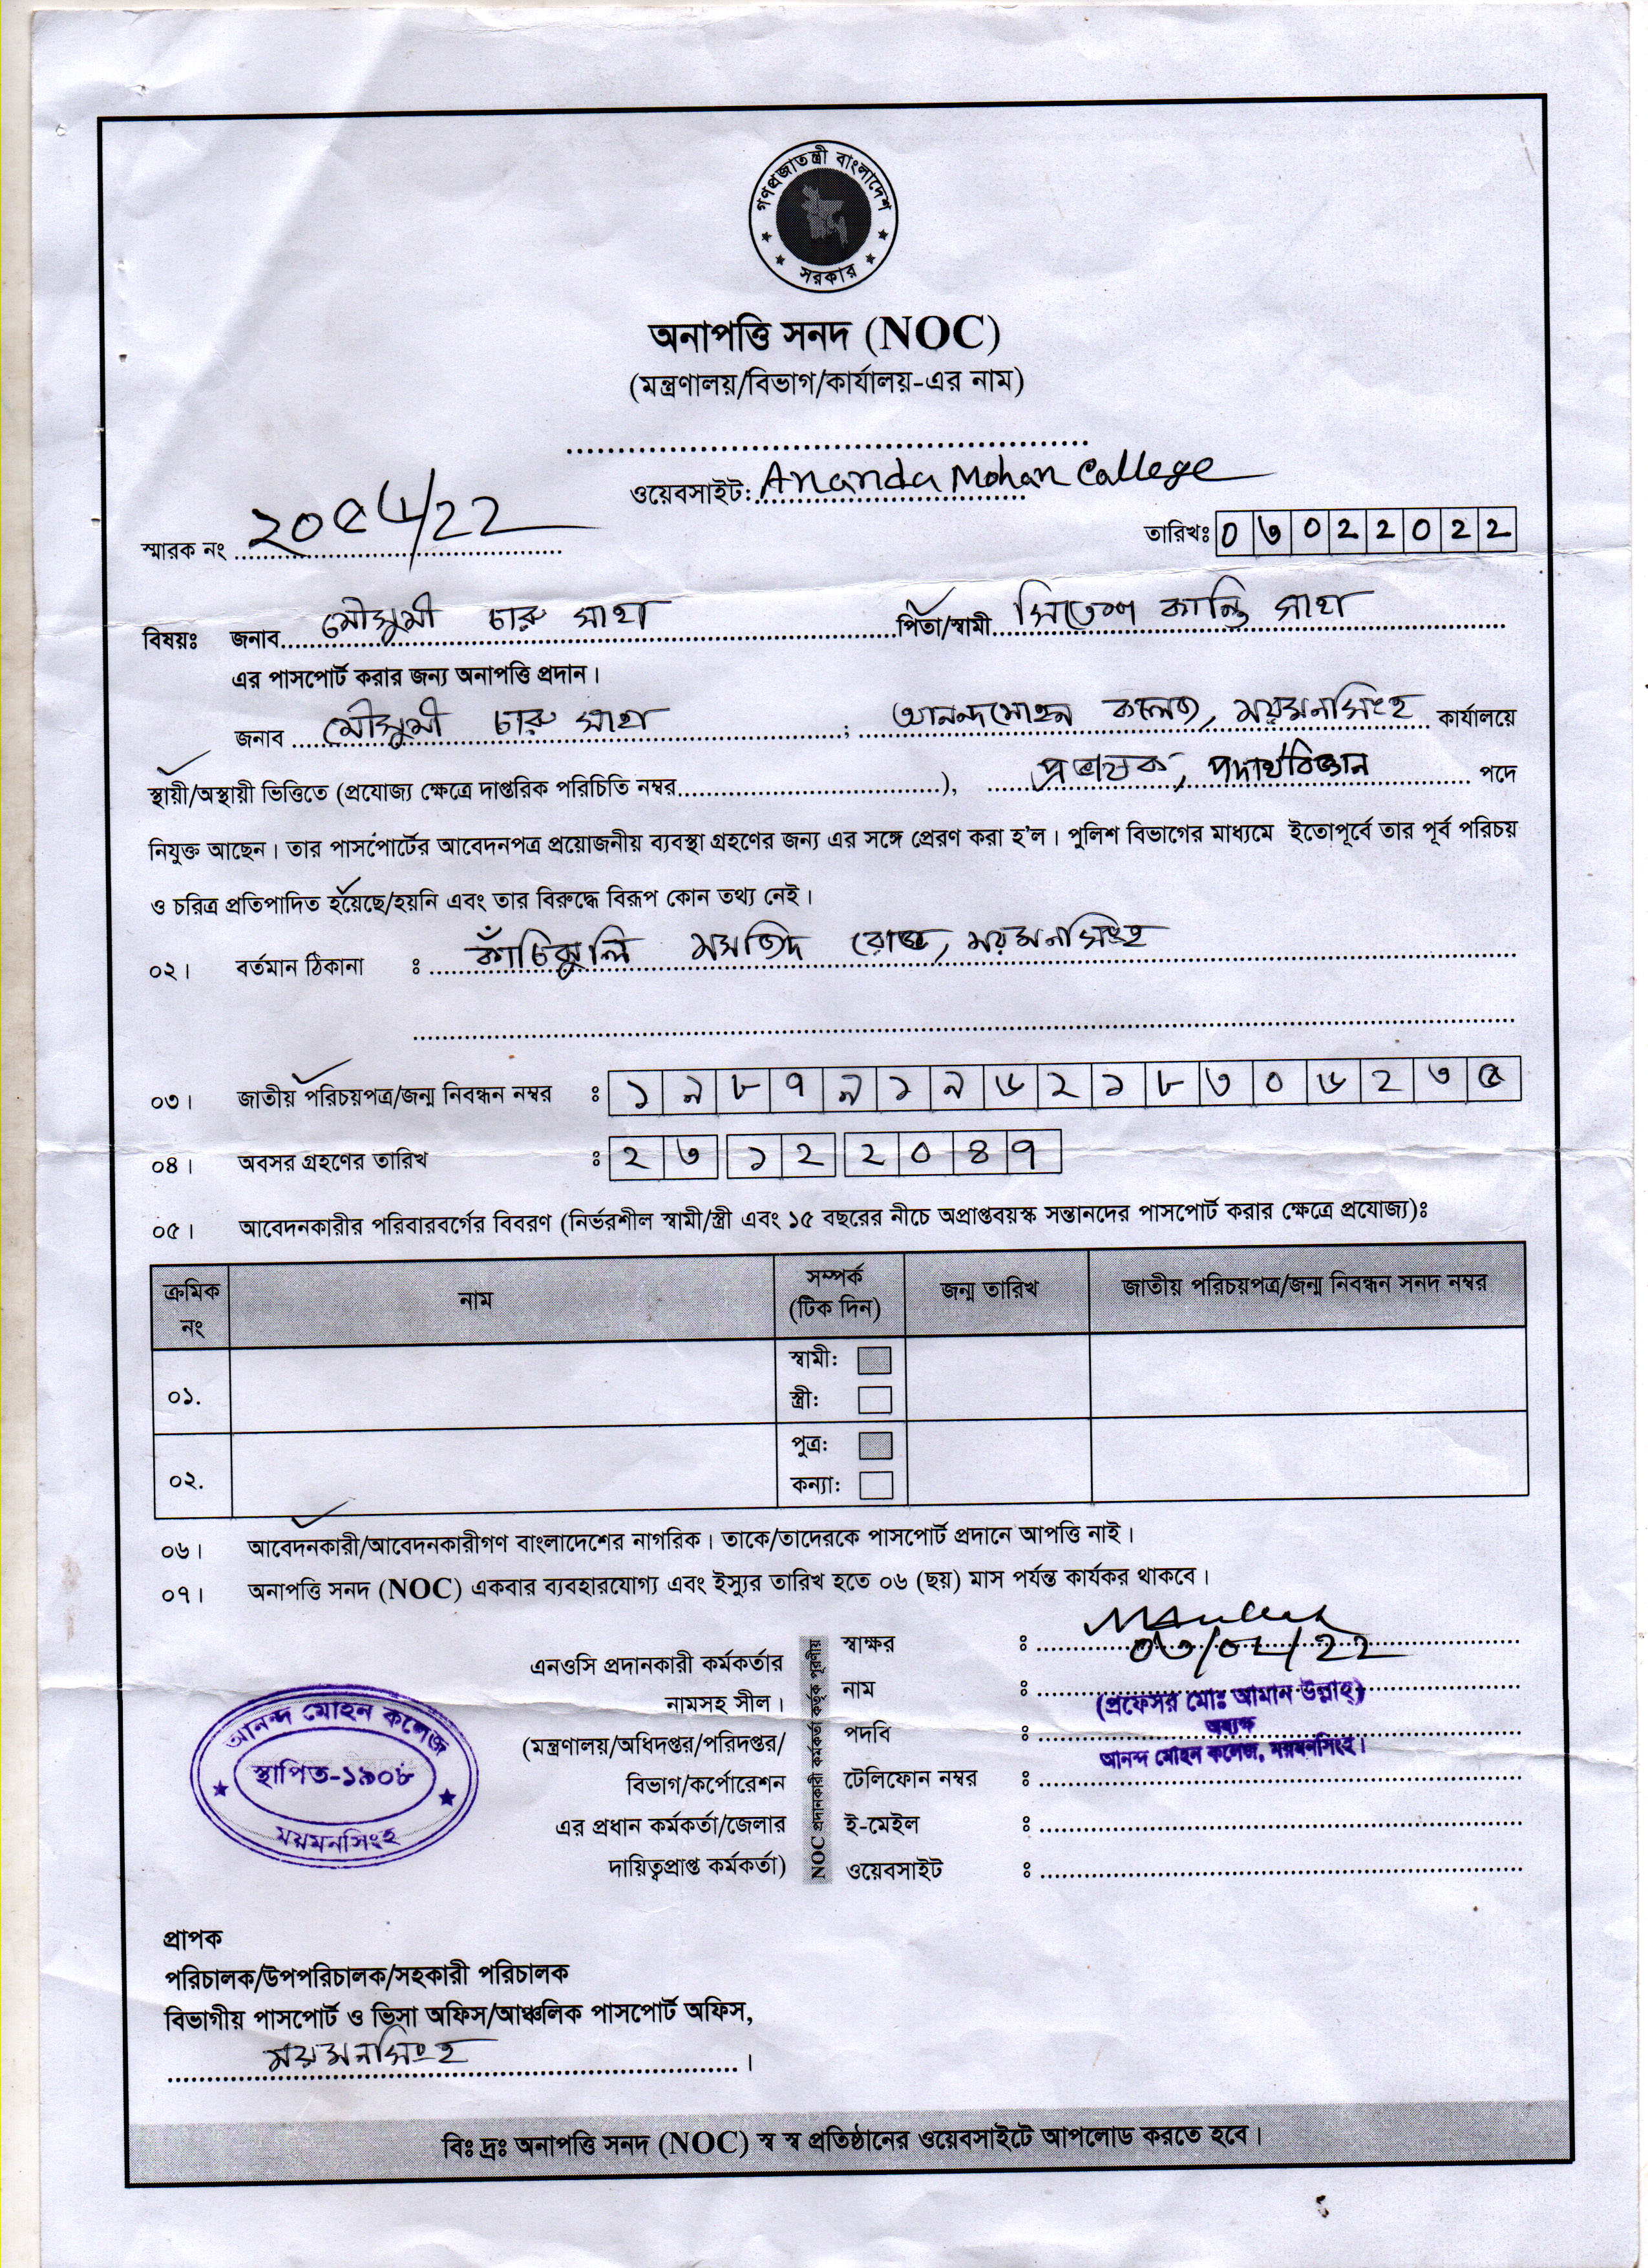 গণপ্রজাতন্ত্রী বাংলাদেশ
সরকার
অনাপত্তি সনদ (NOC)
(মন্ত্রণালয়/বিভাগ/কার্যালয়-এর নাম)
ওয়েবসাইট: Ananda Mohan College
স্মারক নং ২০৫৬/22
তারিখঃ ০৩০২২০২২
বিষয়ঃ জনাব মৌসুমী চারু সাহা পিতা/স্বামী সিতেশ কান্তি সাহা
এর পাসপোর্ট করার জন্য অনাপত্তি প্রদান।
জনাব মৌসুমী চারু সাহা ; আনন্দমোহন কলেজ, ময়মনসিংহ কার্যালয়ে
স্থায়ী/অস্থায়ী ভিত্তিতে (প্রযোজ্য ক্ষেত্রে দাপ্তরিক পরিচিতি নম্বর), প্রভাষক, পদার্থবিজ্ঞান পদে
নিযুক্ত আছেন। তার পাসপোর্টের আবেদনপত্র প্রয়োজনীয় ব্যবস্থা গ্রহণের জন্য এর সঙ্গে প্রেরণ করা হ'ল। পুলিশ বিভাগের মাধ্যমে ইতোপূর্বে তার পূর্ব পরিচয়
ও চরিত্র প্রতিপাদিত হয়েছে/হয়নি এবং তার বিরুদ্ধে বিরূপ কোন তথ্য নেই।
০২। বর্তমান ঠিকানা : কাঁচিঝুলি মসজিদ রোড, ময়মনসিংহ
০৩। জাতীয় পরিচয়পত্র/জন্ম নিবন্ধন নম্বর : ১৯৮৭৯১৯৬২১৮৩০৬২৩৫
০৪। অবসর গ্রহণের তারিখ : ২৩ ১২ ২০৪৭
০৫। আবেদনকারীর পরিবারবর্গের বিবরণ (নির্ভরশীল স্বামী/স্ত্রী এবং ১৫ বছরের নীচে অপ্রাপ্তবয়স্ক সন্তানদের পাসপোর্ট করার ক্ষেত্রে প্রযোজ্য)ঃ
ক্রমিক নং নাম সম্পর্ক (টিক দিন) জন্ম তারিখ জাতীয় পরিচয়পত্র/জন্ম নিবন্ধন সনদ নম্বর
স্বামী:
০১. স্ত্রী:
পুত্র:
০২. কন্যা:
০৬। আবেদনকারী/আবেদনকারীগণ বাংলাদেশের নাগরিক। তাকে/তাদেরকে পাসপোর্ট প্রদানে আপত্তি নাই।
০৭। অনাপত্তি সনদ (NOC) একবার ব্যবহারযোগ্য এবং ইস্যুর তারিখ হতে ০৬ (ছয়) মাস পর্যন্ত কার্যকর থাকবে।
এনওসি প্রদানকারী কর্মকর্তার
নামসহ সীল।
(মন্ত্রণালয়/অধিদপ্তর/পরিদপ্তর/
বিভাগ/কর্পোরেশন
এর প্রধান কর্মকর্তা/জেলার
দায়িত্বপ্রাপ্ত কর্মকর্তা)
NOC প্রদানকারী কর্মকর্তা কর্তৃক পূরণীয়
স্বাক্ষর :
নাম : (প্রফেসর মোঃ আমান উল্লাহ্)
পদবি : অধ্যক্ষ
আনন্দ মোহন কলেজ, ময়মনসিংহ।
টেলিফোন নম্বর :
ই-মেইল :
ওয়েবসাইট :
আনন্দ মোহন কলেজ
স্থাপিত-১৯০৮
ময়মনসিংহ
প্রাপক
পরিচালক/উপপরিচালক/সহকারী পরিচালক
বিভাগীয় পাসপোর্ট ও ভিসা অফিস/আঞ্চলিক পাসপোর্ট অফিস,
ময়মনসিংহ।
বিঃ দ্রঃ অনাপত্তি সনদ (NOC) স্ব স্ব প্রতিষ্ঠানের ওয়েবসাইটে আপলোড করতে হবে।